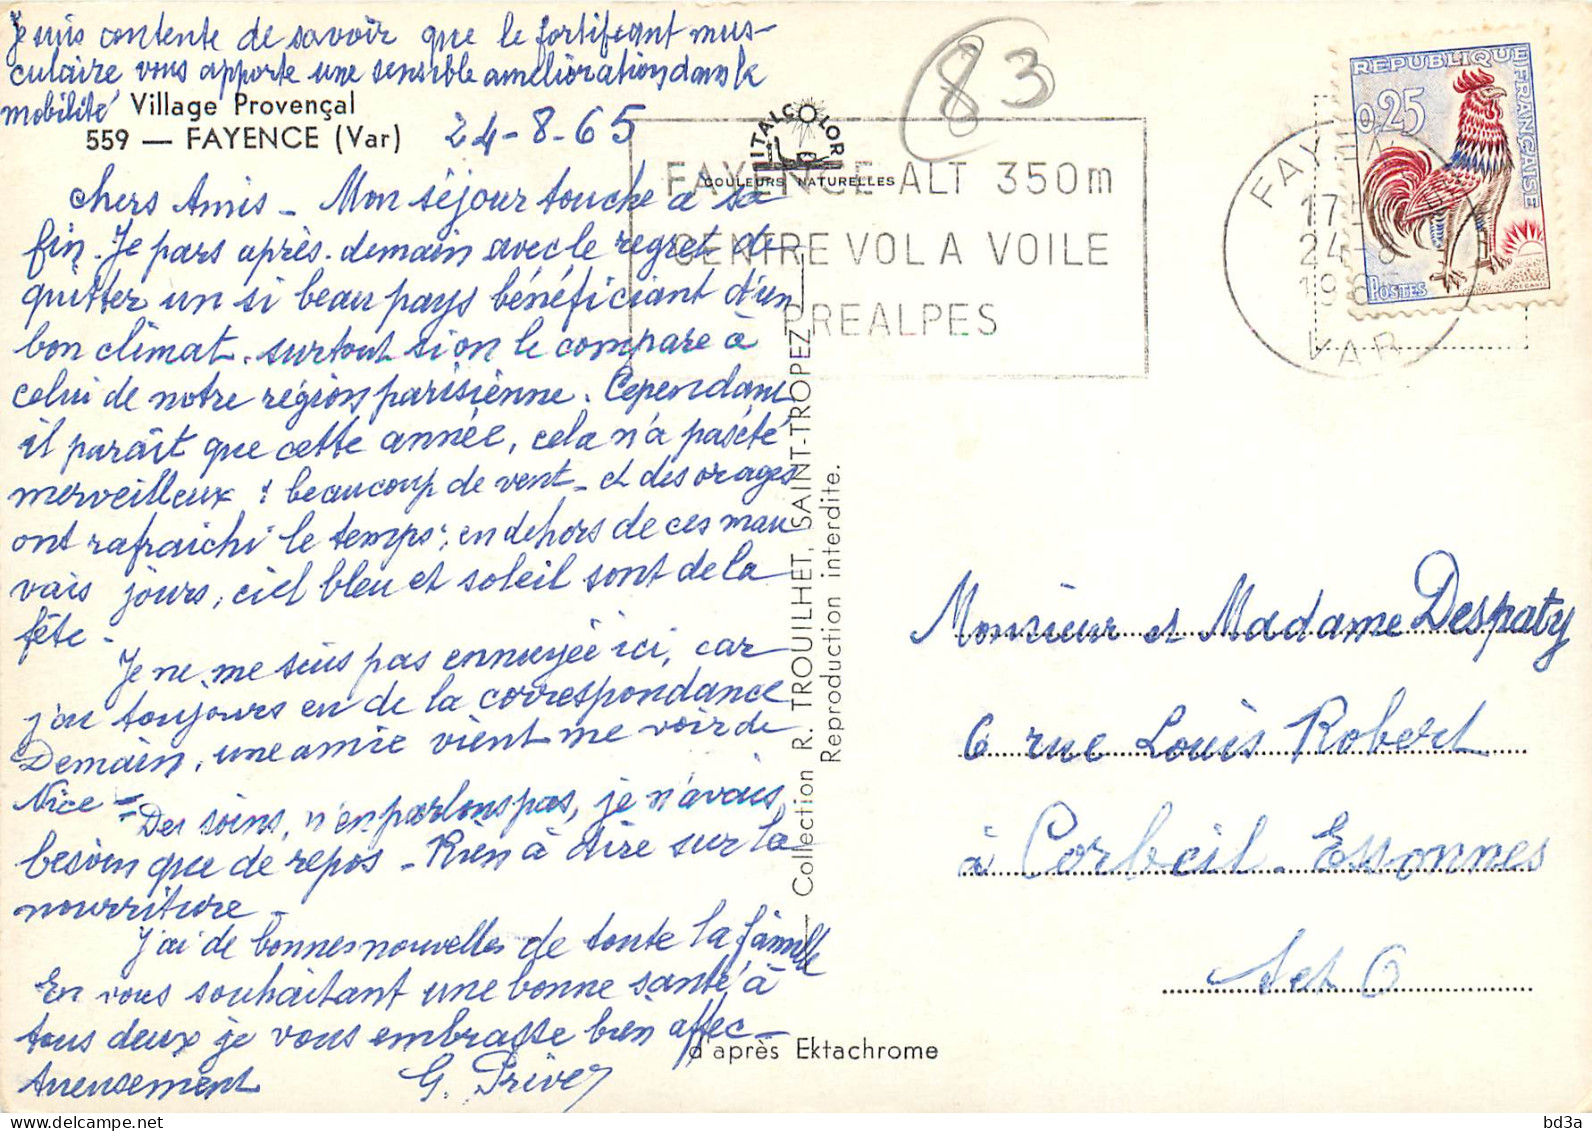 Je suis contente de savoir que le fortifiant mus-
culaire vous apporte une sensible amélioration dans la
mobilité
Village Provençal
559 — FAYENCE (Var)
24-8-65
chers Amis - Mon séjour touche à sa
fin. Je pars après-demain avec le regret de
quitter un si beau pays bénéficiant d'un
bon climat, surtout si on le compare à
celui de notre région parisienne. Cependant
il paraît que cette année, cela n'a pas été
merveilleux : beaucoup de vent - et des orages
ont rafraichi le temps ; en dehors de ces mau
vais jours, ciel bleu et soleil sont de la
fête -
Je ne me suis pas ennuyée ici, car
j'ai toujours eu de la correspondance
Demain, une amie vient me voir de
Nice - Des soins, n'en parlons pas, je n'avais
besoin que de repos - Rien à dire sur la
nourriture
J'ai de bonnes nouvelles de toute la famille
En vous souhaitant une bonne santé à
tous deux je vous embrasse bien affec-
tueusement G.
83
ITALCOLOR
COULEURS NATURELLES
FAYENCE ALT 350m
CENTRE VOL A VOILE
PREALPES
FAYENCE
17H
24-8
1965
VAR
REPUBLIQUE FRANÇAISE
0,25
POSTES
DECARIS
— Collection R. TROUILHET, SAINT-TROPEZ —
Reproduction interdite.
Monsieur et Madame Despaty
6 rue Louis Robert
à Corbeil-Essonnes
S et O
d'après Ektachrome
delcampe.net
bd3a